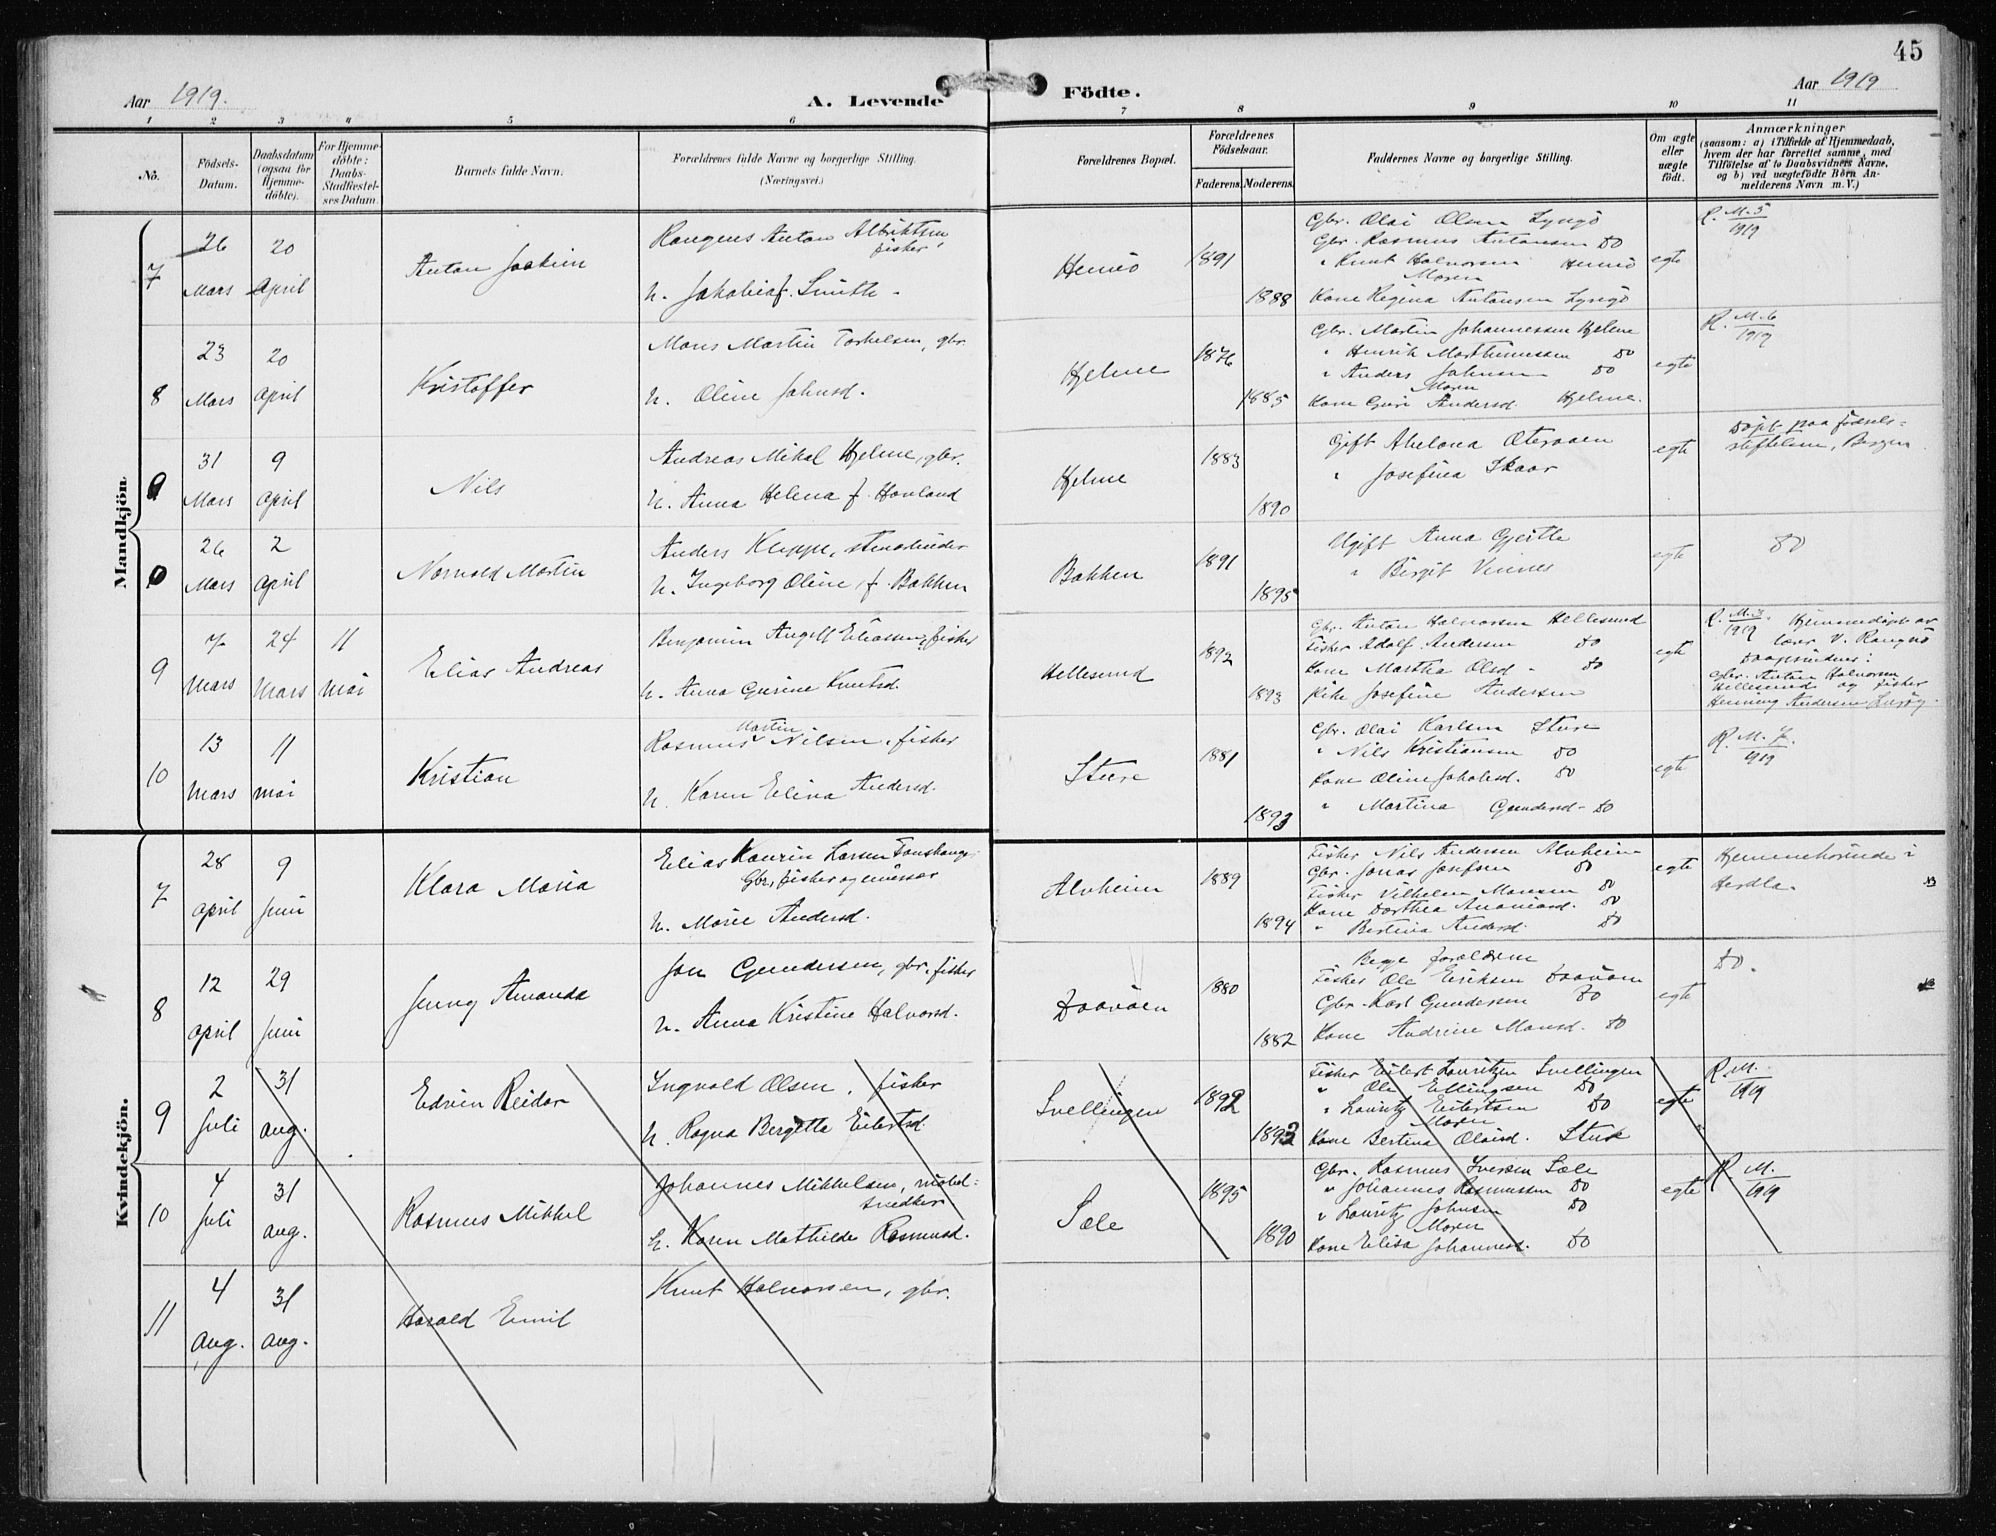 45
Aar 1919.
A. Levende Födte.
Aar 1919
1 2 3 4 5 6 7 8 9 10 11
No.
Födsels-Datum.
Daabsdatum (ogsaa for Hjemme-döbte).
For Hjemme-döbte: Daabs-Stadfæstel-ses Datum.
Barnets fulde Navn.
Forældrenes fulde Navne og borgerlige Stilling.
(Næringsvei.)
Forældrenes Bopæl.
Forældrenes Födselsaar.
Faderens. Moderens.
Faddernes Navne og borgerlige Stilling.
Om ægte eller uægte födt.
Anmærkninger
(saasom: a) i Tilfælde af Hjemmedaab,
hvem der har forrettet samme, med
Tilföielse af to Daabsvidners Navne,
og b) ved uægtefödte Börn An-
melderens Navn m.V.)
Mandkjön.
7
26 Mars
20 April
Anton Joakim
Anton Albriktsen
fisker
h. Jakobia f. Smith
Hernö
1891
1888
Gbr. Olai Olsen Lyngö
Gbr. Rasmus Antonsen do
" Knut Halvorsen Hernö
Moren
Kone Regina Antonsen Lyngö
egte
R. M. 5
1919
8
23 Mars
20 April
Kristoffer
Mons Martin Torkelsen, gbr.
h. Oline Johnsd.
Hjelme
1876
1885
Gbr. Martin Johannessen Hjelme
" Henrik Marthinussen do
" Anders Johnsen do
Moren
Kone Guri Andersd. Hjelme.
egte
R. M. 6
1919
31 Mars
9 April
Nils
Andreas Mikal Hjelme, gbr.
h. Anna Helena f. Hovland
Hjelme
1883
1890
Gift Abelona
" Josefina Skaar
egte
Döpt paa födsels=
stiftelsen, Bergen
26 Mars
2 April
Normold Martin
Anders Kleppe, stenarbeider
h. Ingeborg Oline, f. Bakken
Bakken
1891
1895
Ugift Anna Gjertle
" Birgit Vinnes
egte
do
9
7 Mars
24 Mars
11 Mai
Elias Andreas
Benjamin Angell Eliassen, fisker
h. Anna Gurine Knutsd.
Hellesund
1892
1893
Gbr. Anton Halvorsen Hellesund
Fisker Adolf Andersen do
Kone Martha Olsd. do
Pike Josefine Andersen
egte
R. M. 3.
1919
Hjemmedöpt av
lærer V. Rangnö
Daapsvidner:
Gbr. Anton Halvorsen
Hellesund og fisker
Henning Andersen
10
13 Mars
11 Mai
Kristian
Martin
Rasmus Nilsen, fisker
h. Karen Elina Andersd.
Sture
1881
1893
Gbr. Olai Karlsen Sture
" Nils Kristiansen do
Kone Oline Jakobsd. do
" Martina Gundersd. do
egte
R. M. 7.
1919
Kvindekjön.
7
28 April
9 Juni
Klara Maria
Elias Kaurin Larsen
Gbr, fisker og
h. Marie Andersd.
Alvheim
1889
1894
Fisker Nils Andersen Alvheim
Gbr. Jonas Josefsen do
Fisker Vilhelm Monsen do
Kone Dorthea Ananiasd. do
" Bertina Andersd. do
egte
Hjemmehörende i
Herdla.
8
12 April
29 Juni
Jenny Amanda
Jon Gundersen, gbr. fisker
h. Anna Kristine Halvorsd.
Daavöen
1880
1882
Begge forældrene
Fisker Ole Eriksen Daavöen
Gbr. Karl Gundersen do
Kone Andrine Monsd. do
egte
do.
9
2 Juli
31 Aug.
Edvin Reidar
Ingvald Olsen, fisker
h. Ragna Bergitta Eilertsd.
Svellingen
1892
1893
Fisker Eilert Lauritzen Svellingen
" Ole Ellingsen do
" Lauritz Eilertsen do
Moren
Kone Bertina Olaisd. Sture
egte
R. M.
1919
10
4 Juli
31 Aug.
Rasmus Mikkel
Johannes Mikkelsen, möbel=
snedker
h. Karen Mathilde Rasmusd.
Sæle
1895
1890
Gbr. Rasmus Iversen Sæle
" Johannes Rasmussen do
" Lauritz Johnsen do
Moren
Kone Elisa Johannesd. do
egte
R. M.
1919
11
4 Aug.
31 Aug.
Harald Emil
Knut Halvorsen, gbr.